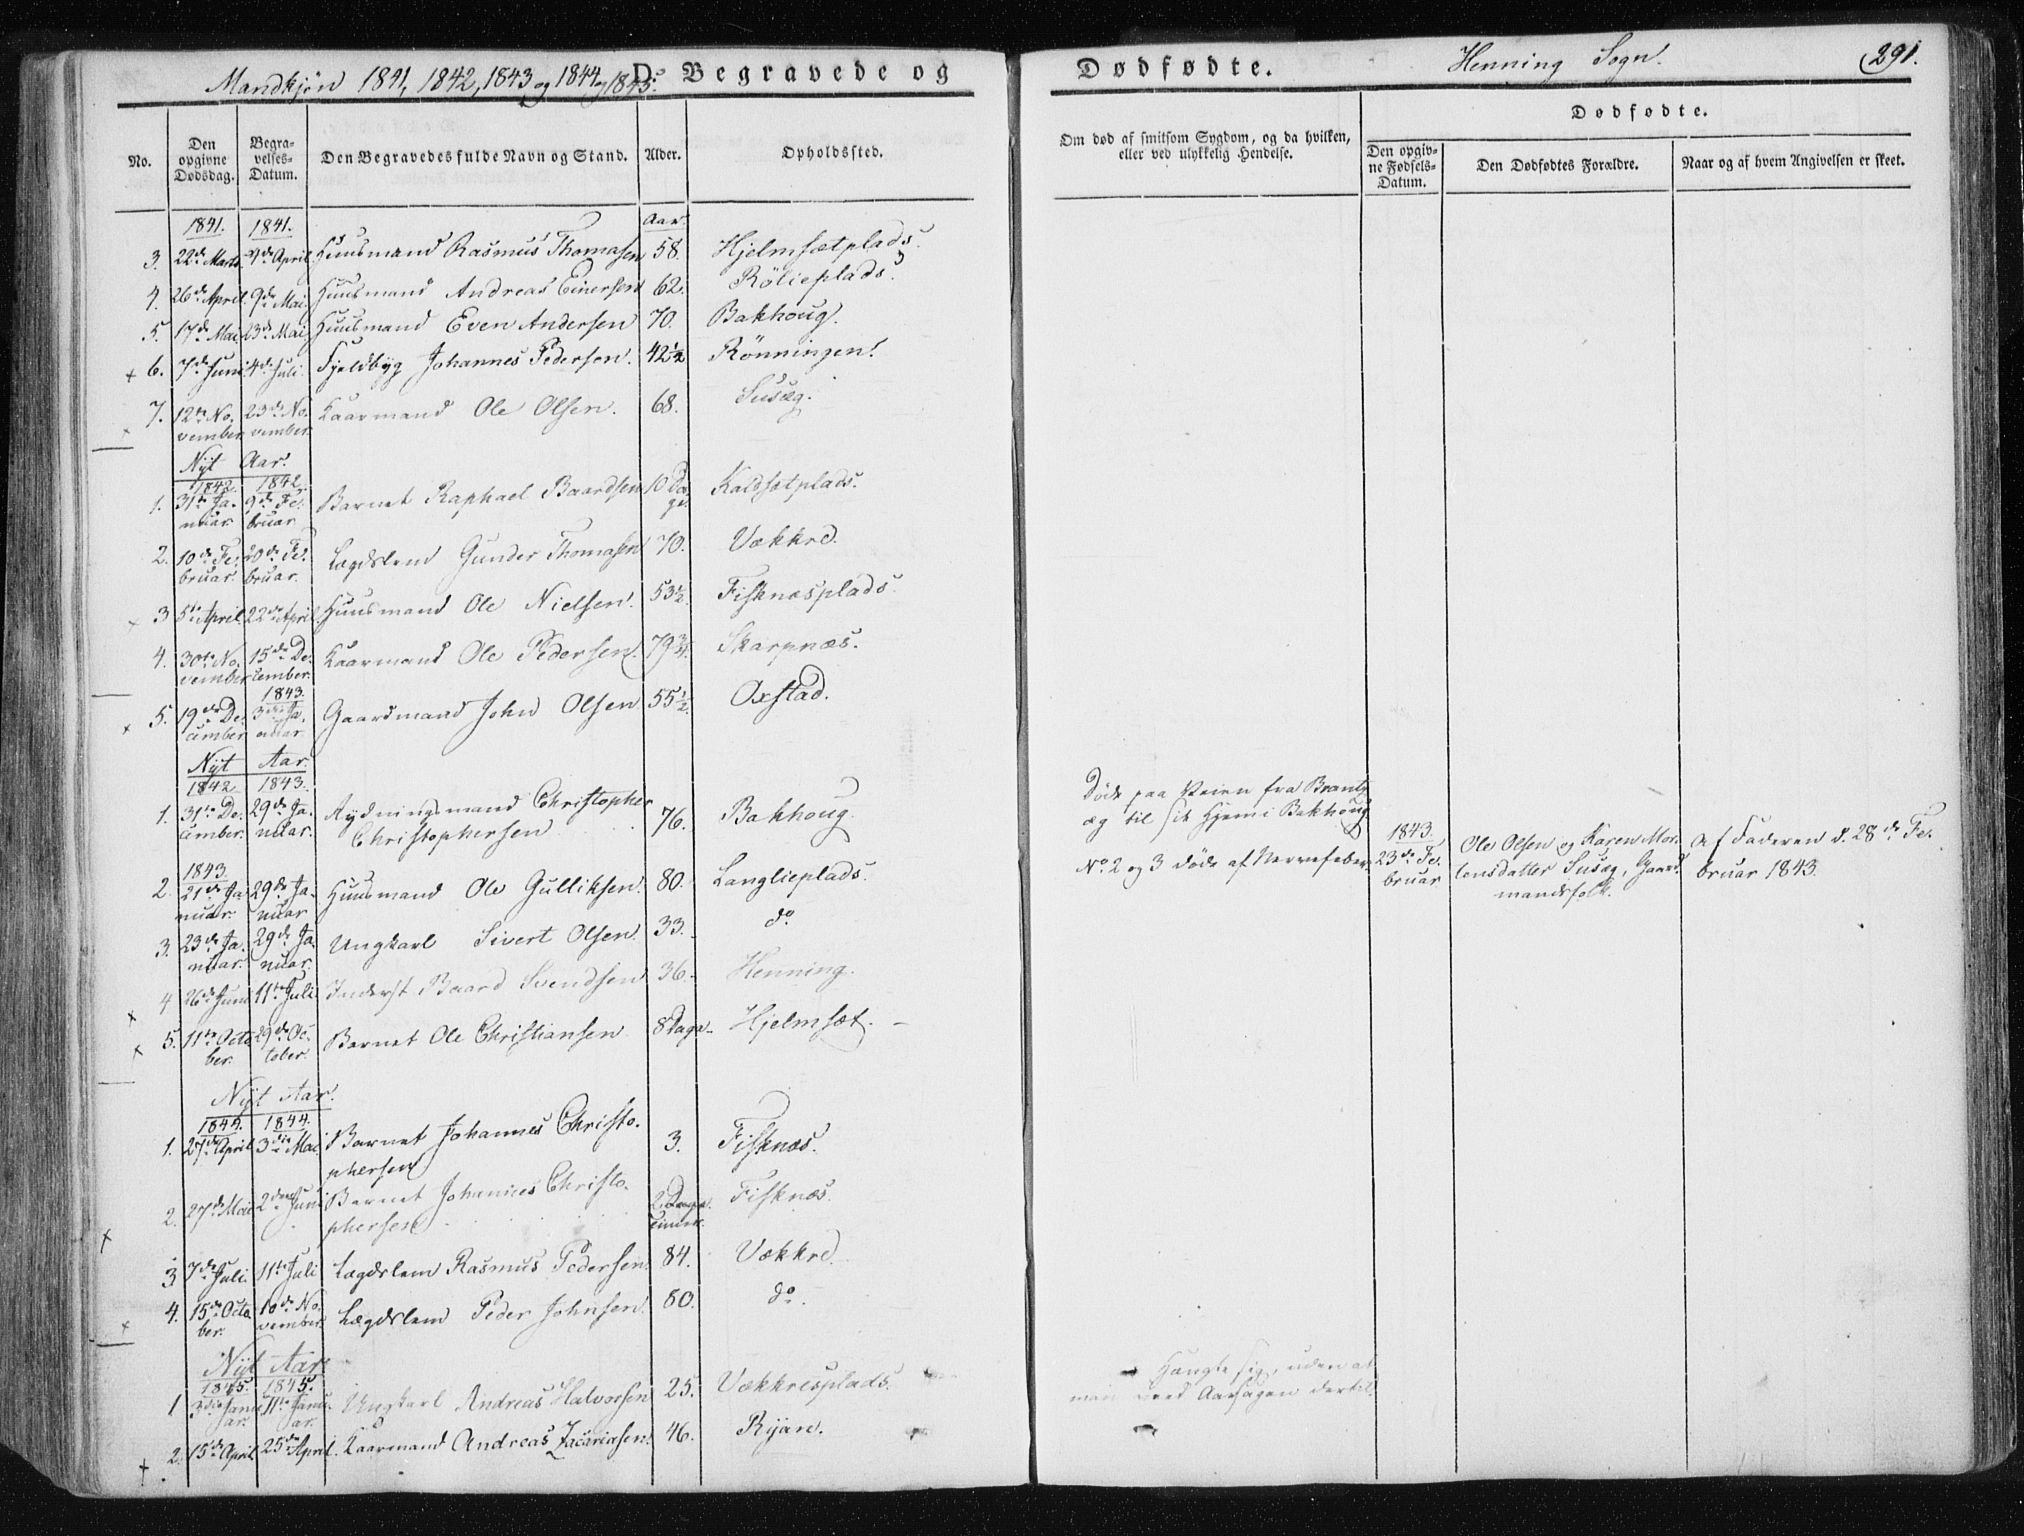 Mandkjøn 1841, 1842, 1843 og 1844 og 1845.
D. Begravede og
Dødfødte.
Henning Sogn.
291.
No.
Den opgivne Dødsdag.
Begravelses-Datum.
Den Begravedes fulde Navn og Stand.
Alder.
Opholdssted.
Om død af smitsom Sygdom, og da hvilken, eller ved ulykkelig Hendelse.
Dødfødte.
Den opgivne Fødsels-Datum.
Den Dødfødtes Forældre.
Naar og af hvem Angivelsen er skeet.
1841. 1841. Aar.
3. 22de Marts 4de April Huusmand Rasmus Thomasen 58. Hjelmsætplads.
4. 26de April 9de Mai Huusmand Andreas Einersen 62. Rølieplads.
5. 17de Mai 23de Mai Huusmand Even Andersen 70. Bakhoug.
6. 7de Juni 4de Juli Fjeldbyg Johannes Pedersen. 42½ Rønningen.
7. 12te November 23de November Kaarmand Ole Olsen. 68. Susæg.
Nyt Aar.
1842. 1842.
1. 31te Januar 9de Februar Barnet Raphael Baardsen 10 Dage Kaldsætplads.
2. 10de Februar. 20de Februar. Lægdslem Gunder Thomasen 70. Vækkre.
3 5te April 22de April Huusmand Ole Nielsen. 53½ Fisknæsplads.
4. 30te November 15de December. Kaarmand Ole Pedersen. 79¾ Skarpnæs.
1843.
5. 19de December 3die Januar Gaardmand John Olsen 55½ Oxstad.
Nyt Aar.
1842 1843.
1. 31te December. 29de Januar. Rydningsmand Christopher Christophersen 76. Bakhoug. Døde paa Veien fra Brantzæg til sit Hjem i Bakhoug
1843.
2. 21de Januar. 29de Januar Huusmand Ole Gulliksen. 80. Langlieplads. No. 2 og 3 døde af Nervefeber.
1843. 23de Februar Ole Olsen og Karen Mortensdatter Susæg, Gaardmandsfolk. Af Faderen d. 28de Februar 1843.
3. 23de Januar. 29de Januar. Ungkarl Sivert Olsen. 33. do.
4 26de Juni 11te Juli Inderst Baard Svendsen 36. Henning.
5. 11te October. 29de October. Barnet Ole Christiansen 8 Dage Hjelmsæt.
Nyt Aar.
1844. 1844.
1. 27de April 3die Mai Barnet Johannes Christophersen 3. Fisknæs.
2. 27de Mai 2den Juni Barnet Johannes Christophersen 2 Dage Fisknæs.
3 7de Juli. 11te Juli Lægdslem Rasmus Pedersen. 84. Vækkre.
4. 15de October. 10de November. Lægdslem Peder Johnsen. 80. do.
Nyt Aar.
1845. 1845.
1 3die Januar. 11te Januar. Ungkarl Andreas Halvorsen 25. Vækkresplads. Hængte sig, uden at man veed Aarsagen dertil.
2. 15de April 25de April. Kaarmand Andreas Zacariasen. 46. Ryan.